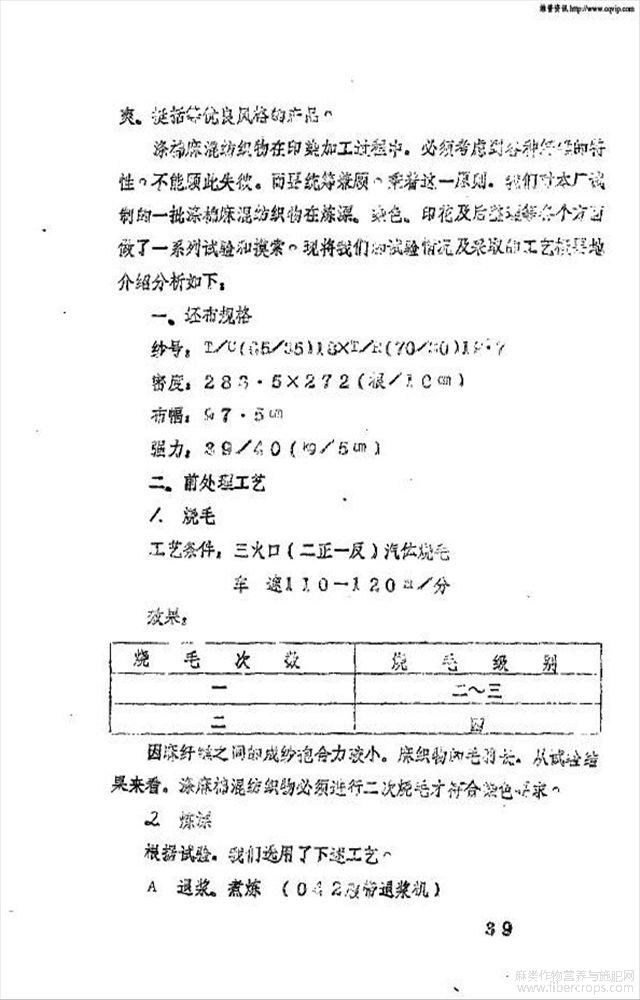 维普资讯 http://www.cqvip.com
爽。挺括等优良风格的产品。
涤棉麻混纺织物在印染加工过程中。必须考虑到各种纤维的特
性。不能顾此失彼。而要统筹兼顾。乘着这一原则。我们对本厂试
制的一批涤棉麻混纺织物在炼漂、染色、印花及后整理等各个方面
做了一系列试验和摸索。现将我们的试验情况及采取的工艺
介绍分析如下：
一。坯布规格
纱号：T/C(65/35)18×T/R(70/30)
密度：283·5×272(根/10cm)
布幅：97·5cm
强力：39/40(kg/5cm)
二。前处理工艺
1. 烧毛
工艺条件：三火口(二正一反)汽体烧毛
车 速110—120m/分
效果：
烧 毛 次 数 烧 毛 级 别
一 二～三
二 四
因麻纤维之间的成纱抱合力较小。麻织物的毛羽长。从试验结
果来看。涤麻棉混纺织物必须进行二次烧毛才符合染色要求。
2 炼漂
根据试验。我们选用了下述工艺。
A 退浆。煮炼 (042 退浆机)
39
麻类作物营养与施肥网
www.fibercrops.com